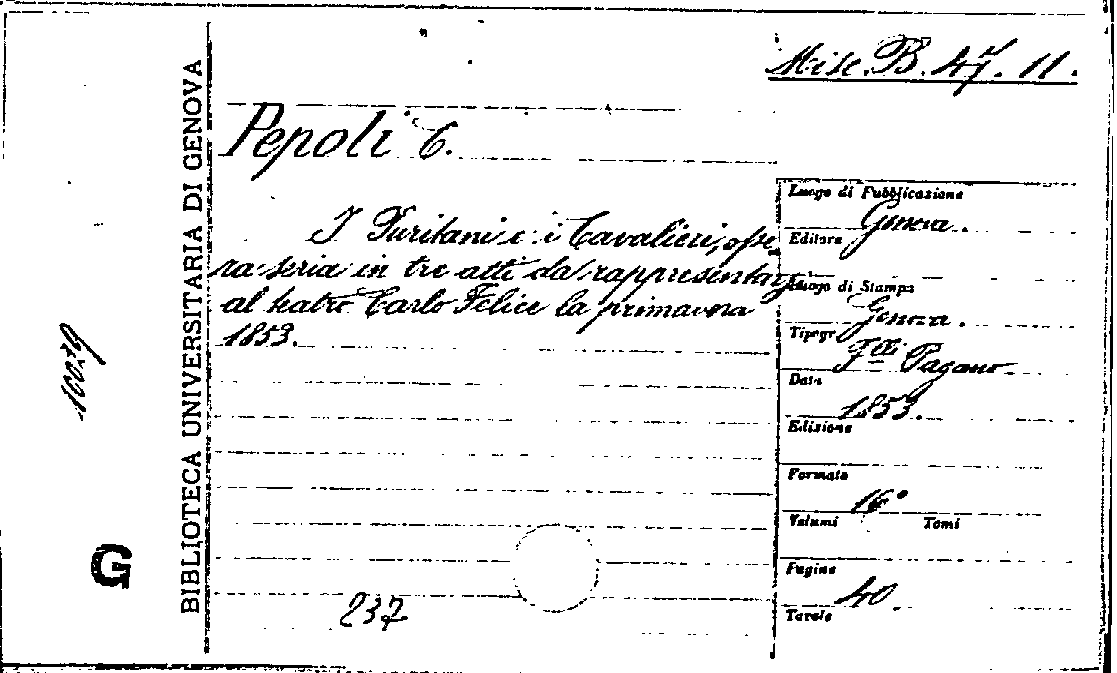 Misc. B. 47. 11.
Pepoli C.
I Puritani e i Cavalieri, ope-
ra seria in tre atti da rappresentarsi
al teatro Carlo Felice la primavera
1853.
237
Luogo di Pubblicazione
Genova.
Editore
Luogo di Stampa
Genova.
Tipogr.
F.lli Pagano
Data
1853.
Edizione
Formato
16°
Volumi Tomi
Pagine
40.
Tavole
BIBLIOTECA UNIVERSITARIA DI GENOVA
G